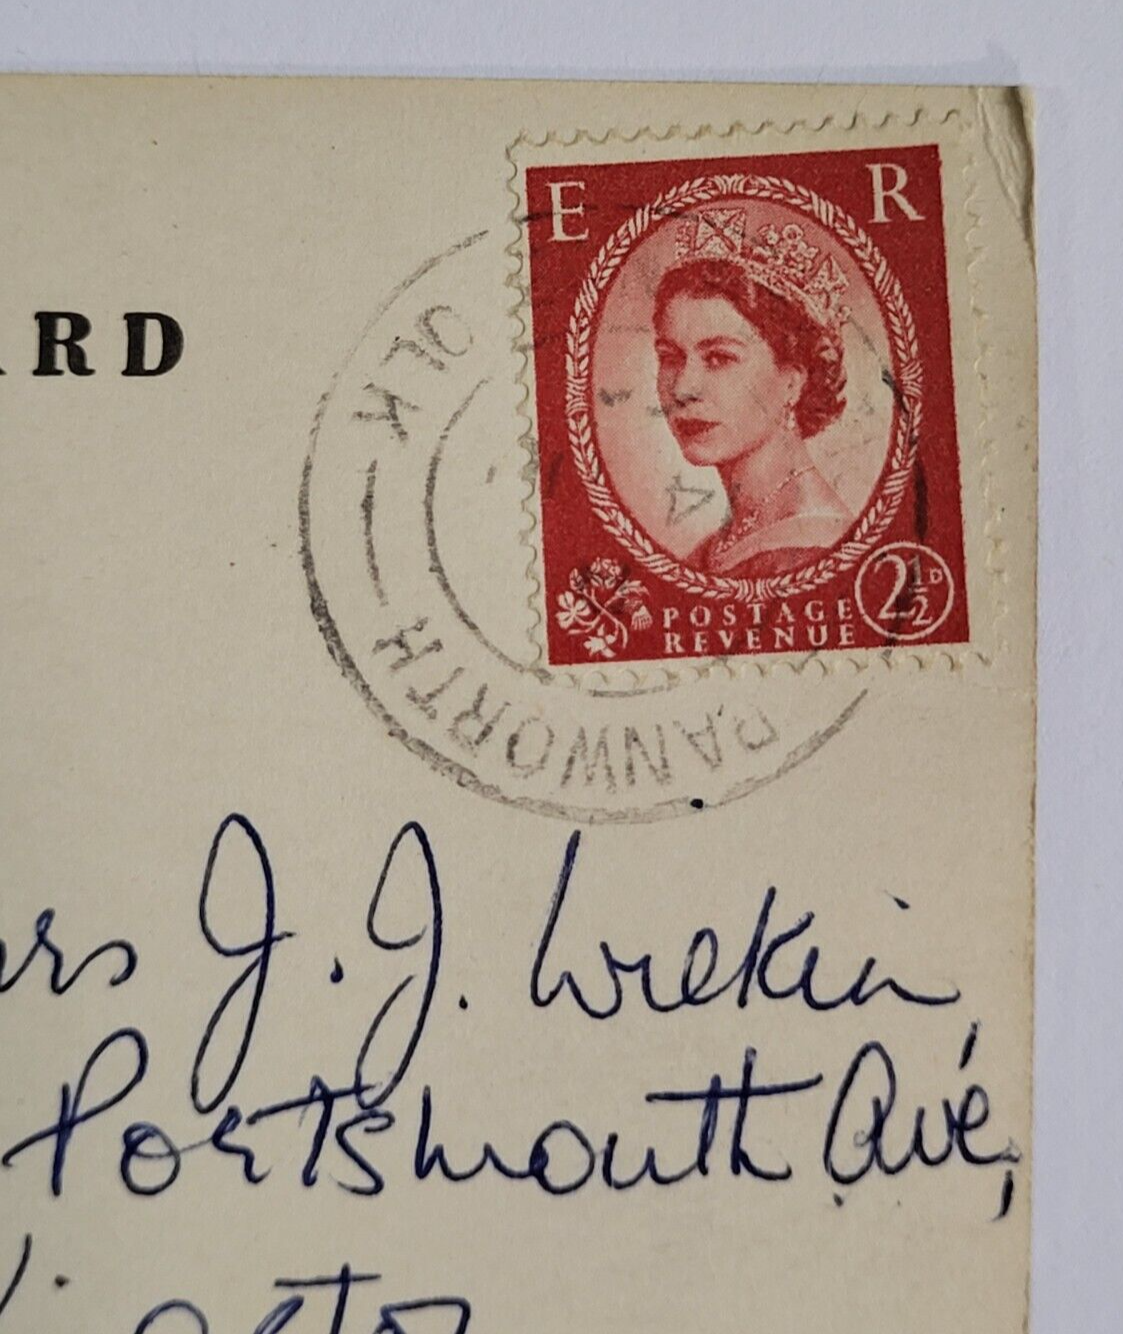 ARD
E R
POSTAGE
REVENUE
2½D
RANWORTH
OLK
J. J. Wrekin,
Portsmouth Ave,